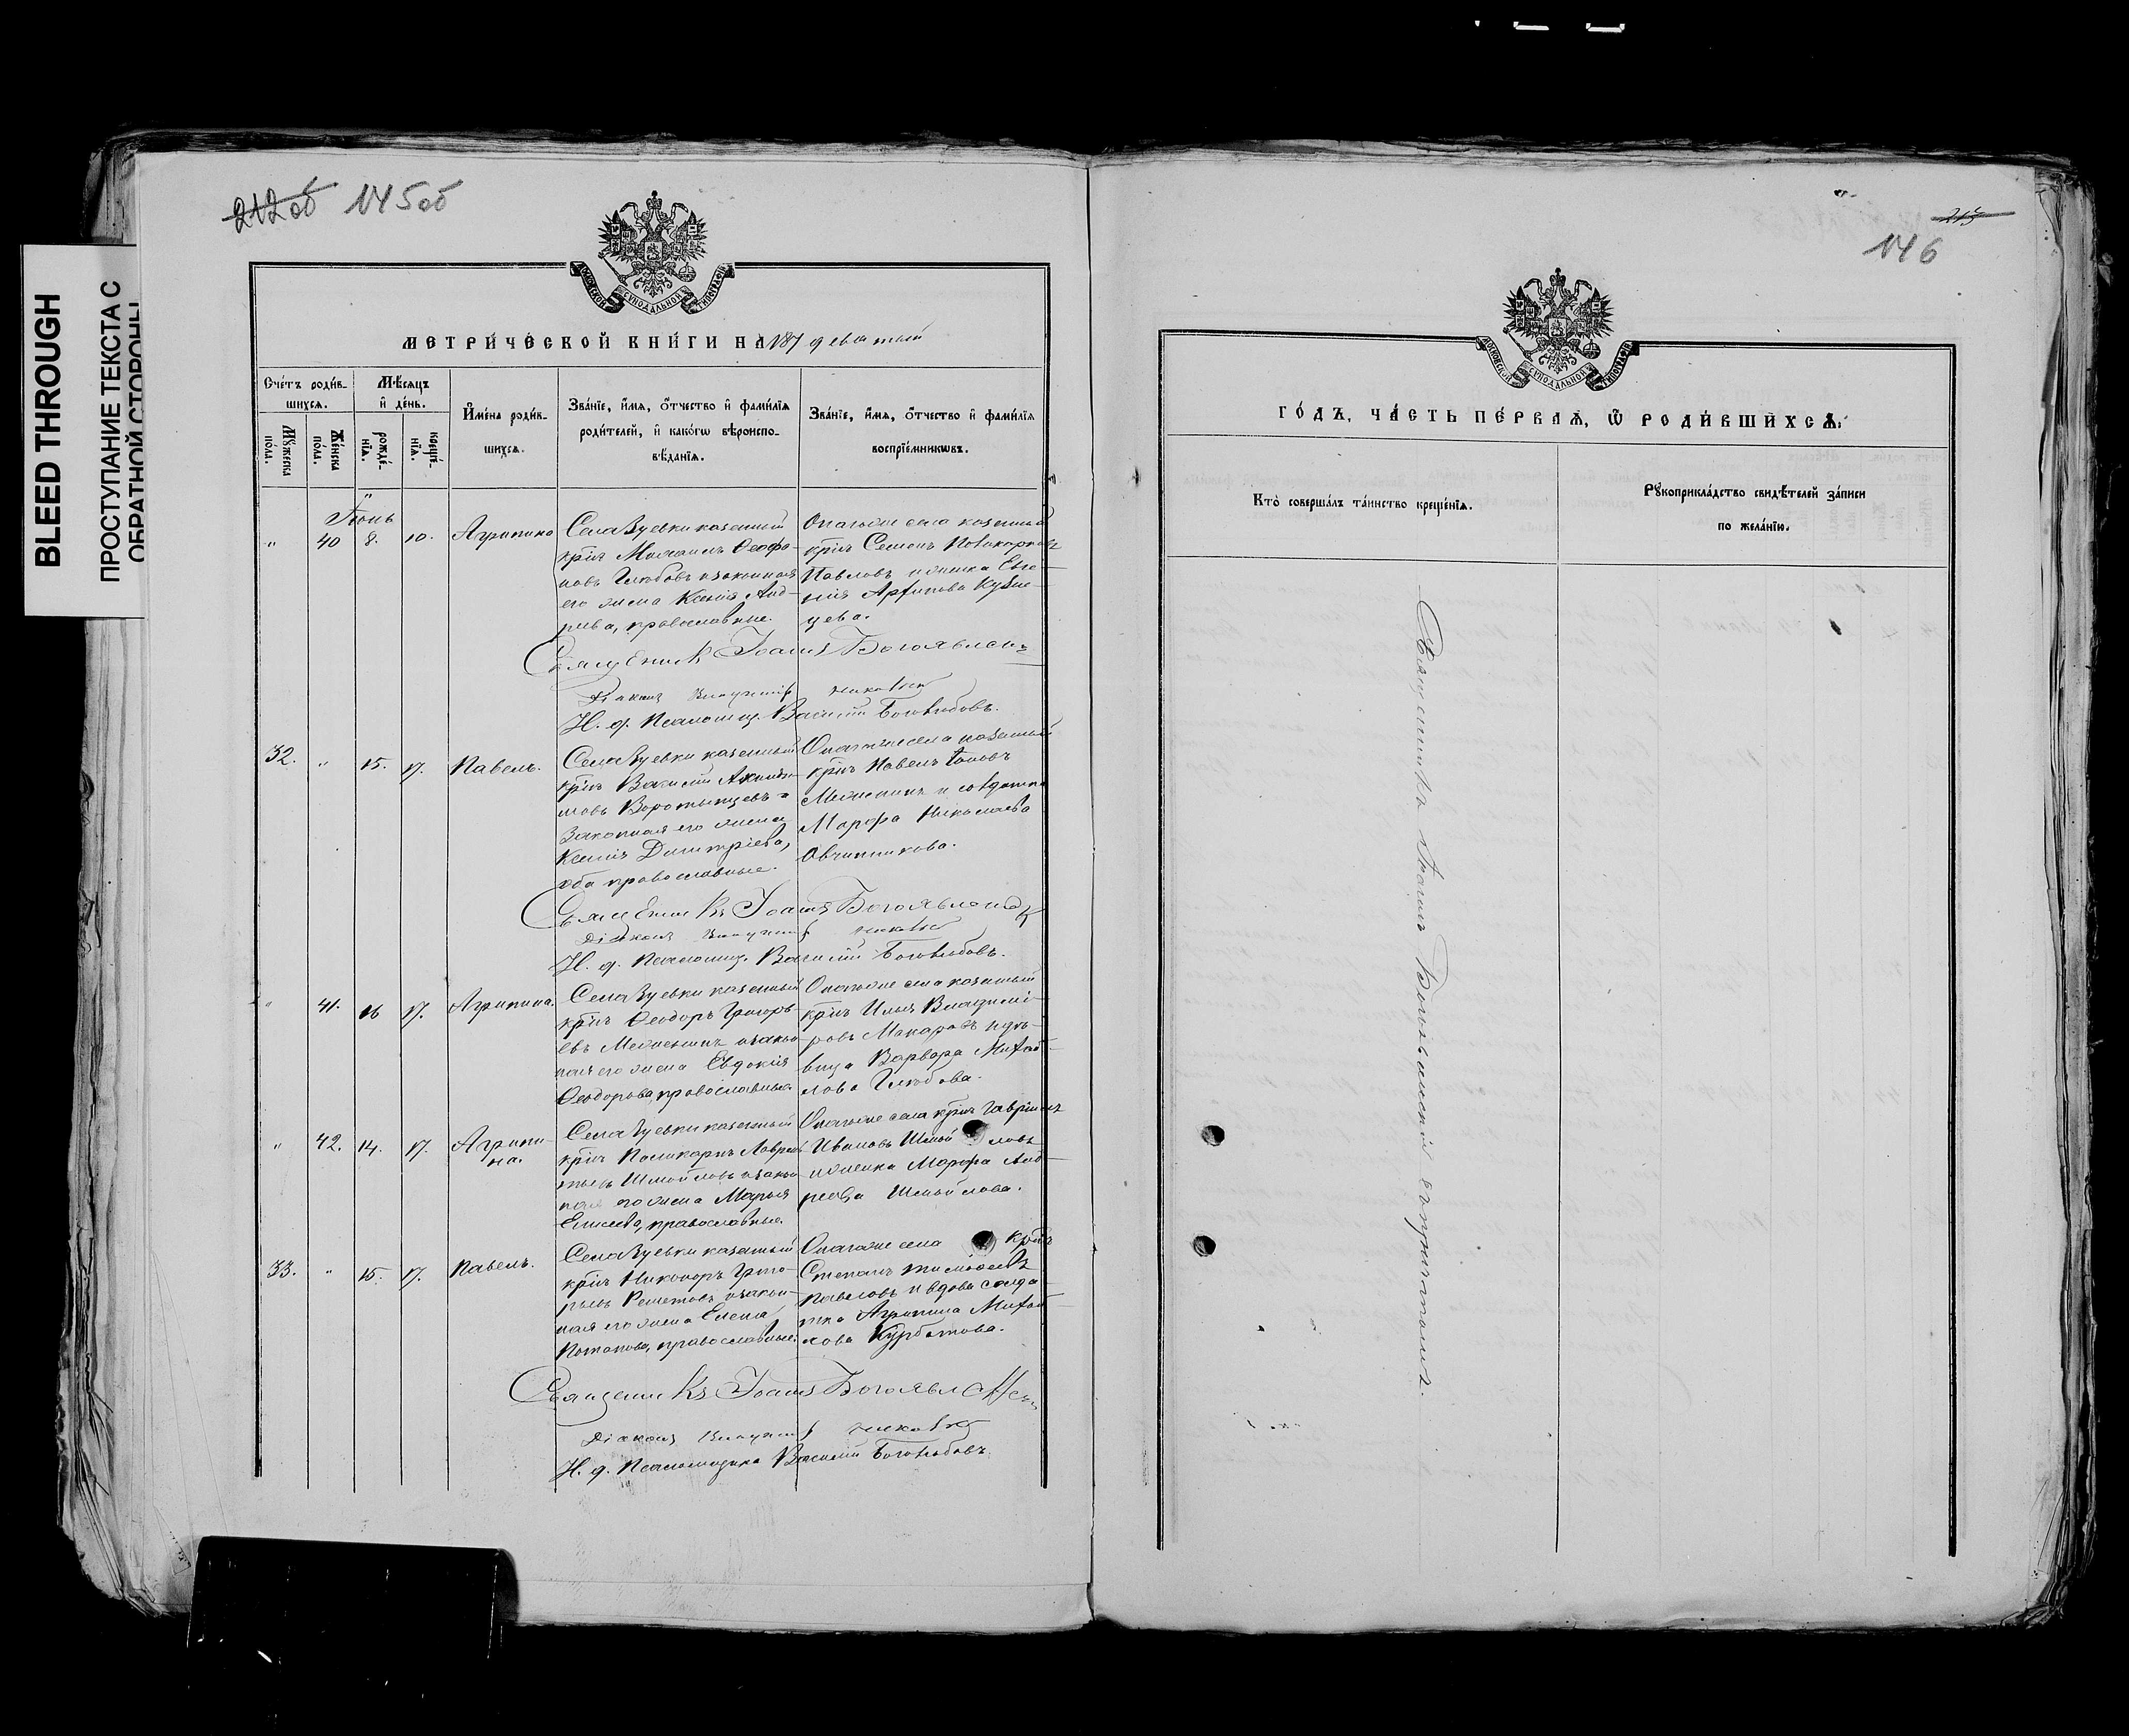 BLEED THROUGH
ПРОСТУПАНИЕ ТЕКСТА С
ОБРАТНОЙ СТОРОНЫ
212об 145об
МОСКОВСКОЙ СѴНОДАЛЬНОЙ ТИПОГРАФІИ
МЕТРИ́ЧЕСКОЙ КНИ́ГИ НА 187 девятый
Сче́тъ роди́в-
шихсѧ.
Мѣ́сѧцъ
и҆ де́нь.
И҆мена̀ роди́в-
шихсѧ.
Зва́нїе, и҆́мѧ, ѻ҆́тчество и҆ фами́лїѧ
роди́телей, и҆ како́гѡ вѣроиспо-
вѣ́данїѧ.
Зва́нїе, и҆́мѧ, ѻ҆́тчество и҆ фами́лїѧ
воспрїе́мникѡвъ.
Мꙋ́жеска
по́ла.
Же́нска
по́ла.
рожде́-
нїѧ.
креще́-
нїѧ.
Іюнь
" 40 8. 10. Агрипина
Села Зуевки казенный
крінъ Михаилъ Ѳеофа-
новъ Глюбовъ и законная
его жена Ксенія Анд-
реева, православные.
Онагоже села казенный
крінъ Семенъ Поликарповъ
Павловъ и дѣвка Евге-
нія Архипова Кузне-
цева.
Священникъ Іоаннъ Богоявленскій
Діаконъ Владиміръ
И. д. Псаломщ. Василій Боголюбовъ.
32. " 15. 17. Павелъ.
Села Зуевки казенный
крінъ Василій Акинѳи-
новъ Воротынцевъ и
законная его жена
Ксенія Димитріева,
оба православные.
Онагоже села казенный
крінъ Павелъ
Меженинъ и солдатка
Марфа Николаева
Овчинникова.
Священникъ Іоаннъ Богоявленскій
Діаконъ Владиміръ
И. д. Псаломщ. Василій Боголюбовъ.
" 41. 16 17. Агрипина.
Села Зуевки казенный
крінъ Ѳеодоръ Григорь-
евъ Меженинъ и закон-
ная его жена Евдокія
Ѳеодорова, православные.
Онагоже села казенный
крінъ Илья Владимі-
ровъ Макаровъ и дѣ-
вица Варвара Михай-
лова Глюбова.
" 42. 14. 17. Агрипи-
на.
Села Зуевки казенный
крінъ Поликарпъ Лаврен-
тьевъ Шмойловъ и закон-
ная его жена Марья
Елисеева, православные.
Онагоже села крінъ Гавріилъ
Ивановъ Шмойловъ
и дѣвка Марфа Анд-
реева Шмойлова.
33. " 15. 17. Павелъ.
Села Зуевки казенный
крінъ Никаноръ Григо-
рьевъ Решетовъ и закон-
ная его жена Елена
Потапова, православные.
Онагоже села крінъ
Степанъ Тимофеевъ
Павловъ и вдова солда-
тка Агрипина Михай-
лова Курбатова.
Священникъ Іоаннъ Богоявленскій
Діаконъ Владиміръ
И. д. Псаломщика Василій Боголюбовъ.
213
146
МОСКОВСКОЙ СѴНОДАЛЬНОЙ ТИПОГРАФІИ
ГО́ДЪ, ЧА́СТЬ ПЕ́РВАѦ, Ѽ РОДИ́ВШИХСѦ.
Кто̀ соверша́лъ та́инство креще́нїѧ.
Рꙋкоприкла́дство свидѣ́телей за́писи
по жела́нїю.
Священникъ Іоаннъ Богоявленскій съ причтомъ.